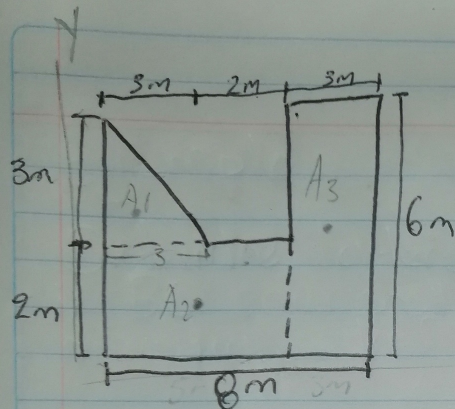 Y
3m 2m 3m
3m
A1
A3
6m
3
2m
A2
8m